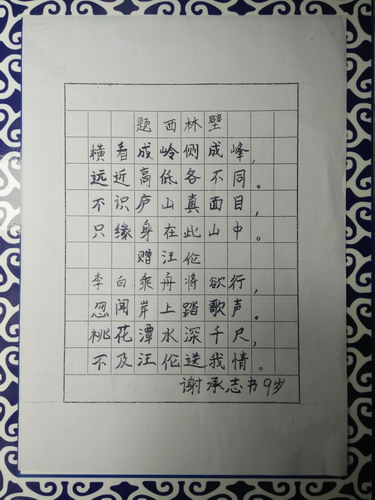 题西林壁
横看成岭侧成峰,
远近高低各不同。
不识庐山真面目,
只缘身在此山中。
赠汪伦
李白乘舟将欲行,
忽闻岸上踏歌声。
桃花潭水深千尺,
不及汪伦送我情。
谢承志书9岁